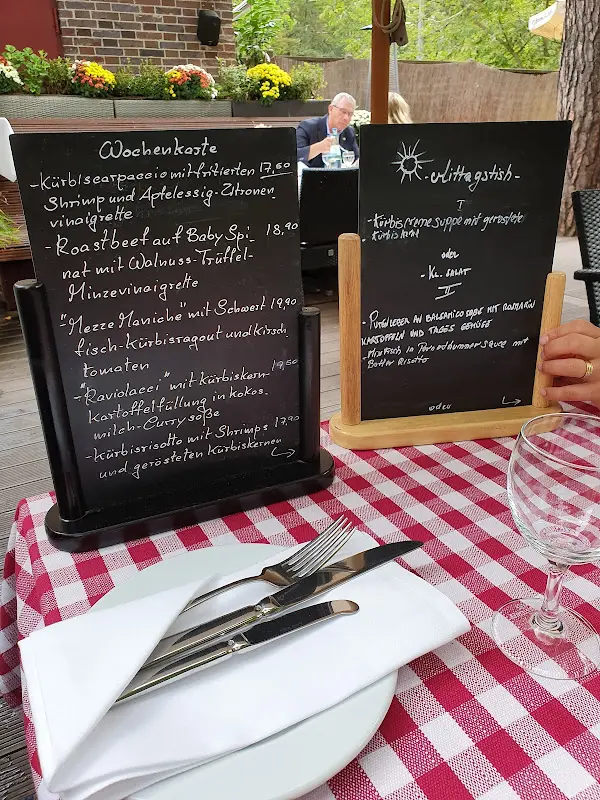 Wochenkarte
-Kürbiscarpaccio mit frittierten 17,60
Shrimp und Apfelessig-Zitronen
vinaigrette
-Roastbeef auf Baby Spi- 18,90
nat mit Walnuss-Trüffel-
Minzevinaigrette
-"Mezze Maniche" mit Schwert 19,90
fisch-Kürbisragout und Kirsch
tomaten
-"Raviolacci" mit Kürbiskern- 19,50
Kartoffelfüllung in Kokos
milch-Curry soße
-Kürbisrisotto mit Shrimps 17,90
und gerösteten Kürbiskernen
Mittagstish-
I
-Kürbiscreme suppe mit geröstete
Kürbis
oder
- KL. SALAT
II
- PUTENLEBER AN BALSAMICO SOßE MIT ROSMARIN
KARTOFFELN UND TAGES GEMÜSE
- Mixfisch in mit
Butter Risotto
oder